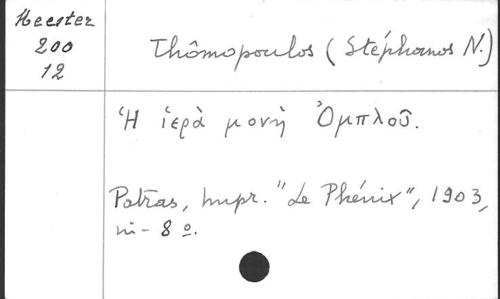 Heester
200
12
Thômopoulos (Stéphanos N.)
Ἡ ἱερὰ μονὴ Ὀμπλοῦ.
Patras, impr. "Le Phénix", 1903,
in-8º.